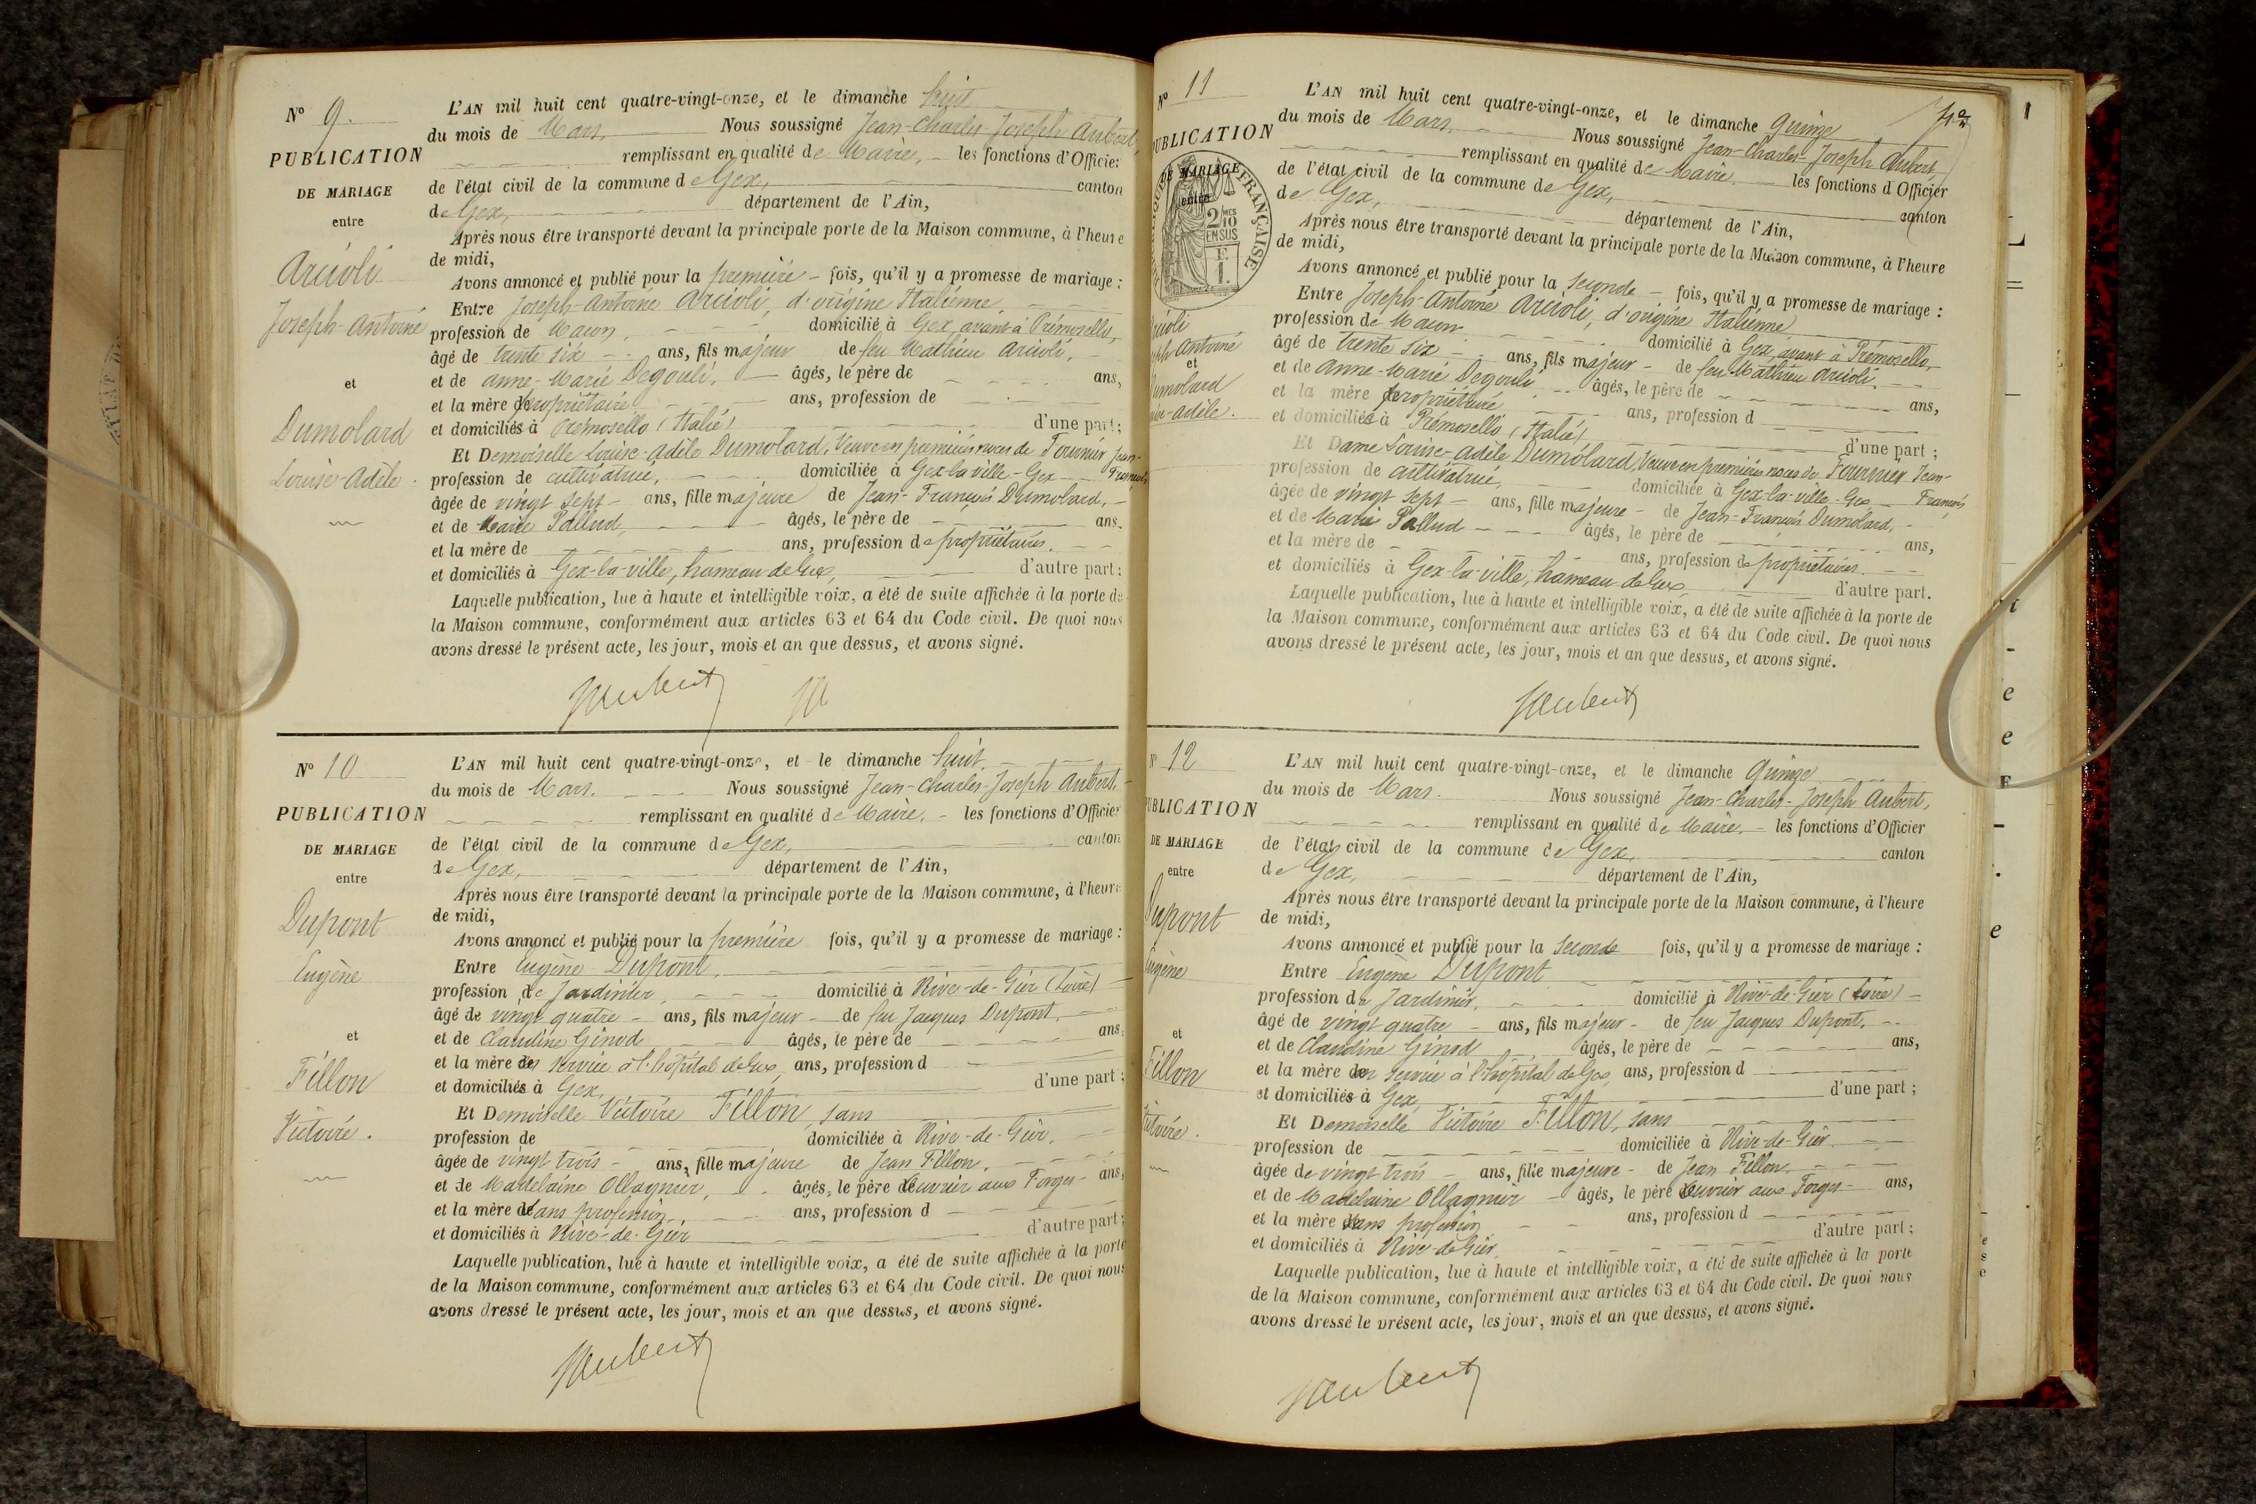 N° 9.
PUBLICATION
DE MARIAGE
entre
Arcioli
Joseph-Antoine
et
Dumolard
Louise-Adèle.
L'AN mil huit cent quatre-vingt-onze, et le dimanche huit
du mois de Mars. Nous soussigné Jean-Charles-Joseph Aubert,
remplissant en qualité de Maire, les fonctions d'Officier
de l'état civil de la commune de Gex, canton
de Gex, département de l'Ain,
Après nous être transporté devant la principale porte de la Maison commune, à l'heure
de midi,
Avons annoncé et publié pour la première fois, qu'il y a promesse de mariage :
Entre Joseph-Antoine Arcioli, d'origine Italienne,
profession de Maçon, domicilié à Gex, avant à Prémosello,
âgé de trente six ans, fils majeur de feu Mathieu Arcioli,
et de Anne-Marie Degouli, âgés, le père de ans,
et la mère propriétaire ans, profession de
et domiciliés à Prémosello (Italie) d'une part;
Et Demoiselle Louise-Adèle Dumolard, Veuve en premières noces de Fournier Jean-
François
profession de cultivatrice, domiciliée à Gex-la-ville-Gex
âgée de vingt sept ans, fille majeure de Jean-François Dumolard,
et de Marie Pallud, âgés, le père de ans.
et la mère de ans, profession de propriétaires.
et domiciliés à Gex-la-ville, hameau de Gex, d'autre part;
Laquelle publication, lue à haute et intelligible voix, a été de suite affichée à la porte de
la Maison commune, conformément aux articles 63 et 64 du Code civil. De quoi nous
avons dressé le présent acte, les jour, mois et an que dessus, et avons signé.
JAubert
N° 10
PUBLICATION
DE MARIAGE
entre
Dupont
Eugène
et
Fillon
Victoire.
L'AN mil huit cent quatre-vingt-onze, et le dimanche huit
du mois de Mars. Nous soussigné Jean-Charles-Joseph Aubert,
remplissant en qualité de Maire, les fonctions d'Officier
de l'état civil de la commune de Gex, canton
de Gex, département de l'Ain,
Après nous être transporté devant la principale porte de la Maison commune, à l'heure
de midi,
Avons annoncé et publié pour la première fois, qu'il y a promesse de mariage :
Entre Eugène Dupont,
profession de Jardinier, domicilié à Rive-de-Gier (Loire)
âgé de vingt quatre ans, fils majeur de feu Jacques Dupont,
et de Claudine Ginod âgés, le père de ans,
et la mère en service à l'hôpital de Gex, ans, profession d
et domiciliés à Gex, d'une part;
Et Demoiselle Victoire Fillon, sans
profession de domiciliée à Rive-de-Gier,
âgée de vingt trois ans, fille majeure de Jean Fillon,
et de Madelaine Ollagnier, âgés, le père ouvrier aux Forges ans,
et la mère sans profession ans, profession d
et domiciliés à Rive-de-Gier d'autre part;
Laquelle publication, lue à haute et intelligible voix, a été de suite affichée à la porte
de la Maison commune, conformément aux articles 63 et 64 du Code civil. De quoi nous
avons dressé le présent acte, les jour, mois et an que dessus, et avons signé.
JAubert
N° 11
PUBLICATION
DE MARIAGE
entre
FRANÇAISE
2/10 MES
EN SUS
et
Dumolard
L'AN mil huit cent quatre-vingt-onze, et le dimanche quinze
du mois de Mars. Nous soussigné Jean-Charles-Joseph Aubert,
remplissant en qualité de Maire. les fonctions d'Officier
de l'état civil de la commune de Gex, canton
de Gex, département de l'Ain,
Après nous être transporté devant la principale porte de la Maison commune, à l'heure
de midi,
Avons annoncé et publié pour la seconde fois, qu'il y a promesse de mariage :
Entre Joseph-Antoine Arcioli, d'origine Italienne
profession de Maçon domicilié à Gex, avant à Prémosello,
âgé de trente six ans, fils majeur de feu Mathieu Arcioli.
et de Anne-Marie Degouli âgés, le père de ans,
et la mère propriétaire ans, profession d
et domiciliés à Prémosello (Italie) d'une part ;
Et Dame Louise-Adèle Dumolard, Veuve en premières noces de Fournier Jean-
François
profession de cultivatrice, domiciliée à Gex-la-ville-Gex
âgée de vingt sept ans, fille majeure de Jean-François Dumolard,
et de Marie Pallud âgés, le père de ans,
et la mère de ans, profession de propriétaires.
et domiciliés à Gex-la-ville, hameau de Gex d'autre part.
Laquelle publication, lue à haute et intelligible voix, a été de suite affichée à la porte de
la Maison commune, conformément aux articles 63 et 64 du Code civil. De quoi nous
avons dressé le présent acte, les jour, mois et an que dessus, et avons signé.
JAubert
N° 12
PUBLICATION
DE MARIAGE
entre
Dupont
Eugène
et
Fillon
Victoire.
L'AN mil huit cent quatre-vingt-onze, et le dimanche quinze
du mois de Mars. Nous soussigné Jean-Charles-Joseph Aubert,
remplissant en qualité de Maire, les fonctions d'Officier
de l'état civil de la commune de Gex, canton
de Gex, département de l'Ain,
Après nous être transporté devant la principale porte de la Maison commune, à l'heure
de midi,
Avons annoncé et publié pour la seconde fois, qu'il y a promesse de mariage :
Entre Eugène Dupont
profession de Jardinier, domicilié à Rive-de-Gier (Loire)
âgé de vingt quatre ans, fils majeur de feu Jacques Dupont,
et de Claudine Ginod âgés, le père de ans,
et la mère en service à l'hôpital de Gex, ans, profession d
et domiciliés à Gex d'une part ;
Et Demoiselle Victoire Fillon, sans
profession de domiciliée à Rive-de-Gier
âgée de vingt trois ans, fille majeure de Jean Fillon
et de Madelaine Ollagnier âgés, le père ouvrier aux Forges ans,
et la mère sans profession ans, profession d
et domiciliés à Rive-de-Gier d'autre part ;
Laquelle publication, lue à haute et intelligible voix, a été de suite affichée à la porte
de la Maison commune, conformément aux articles 63 et 64 du Code civil. De quoi nous
avons dressé le présent acte, les jour, mois et an que dessus, et avons signé.
JAubert